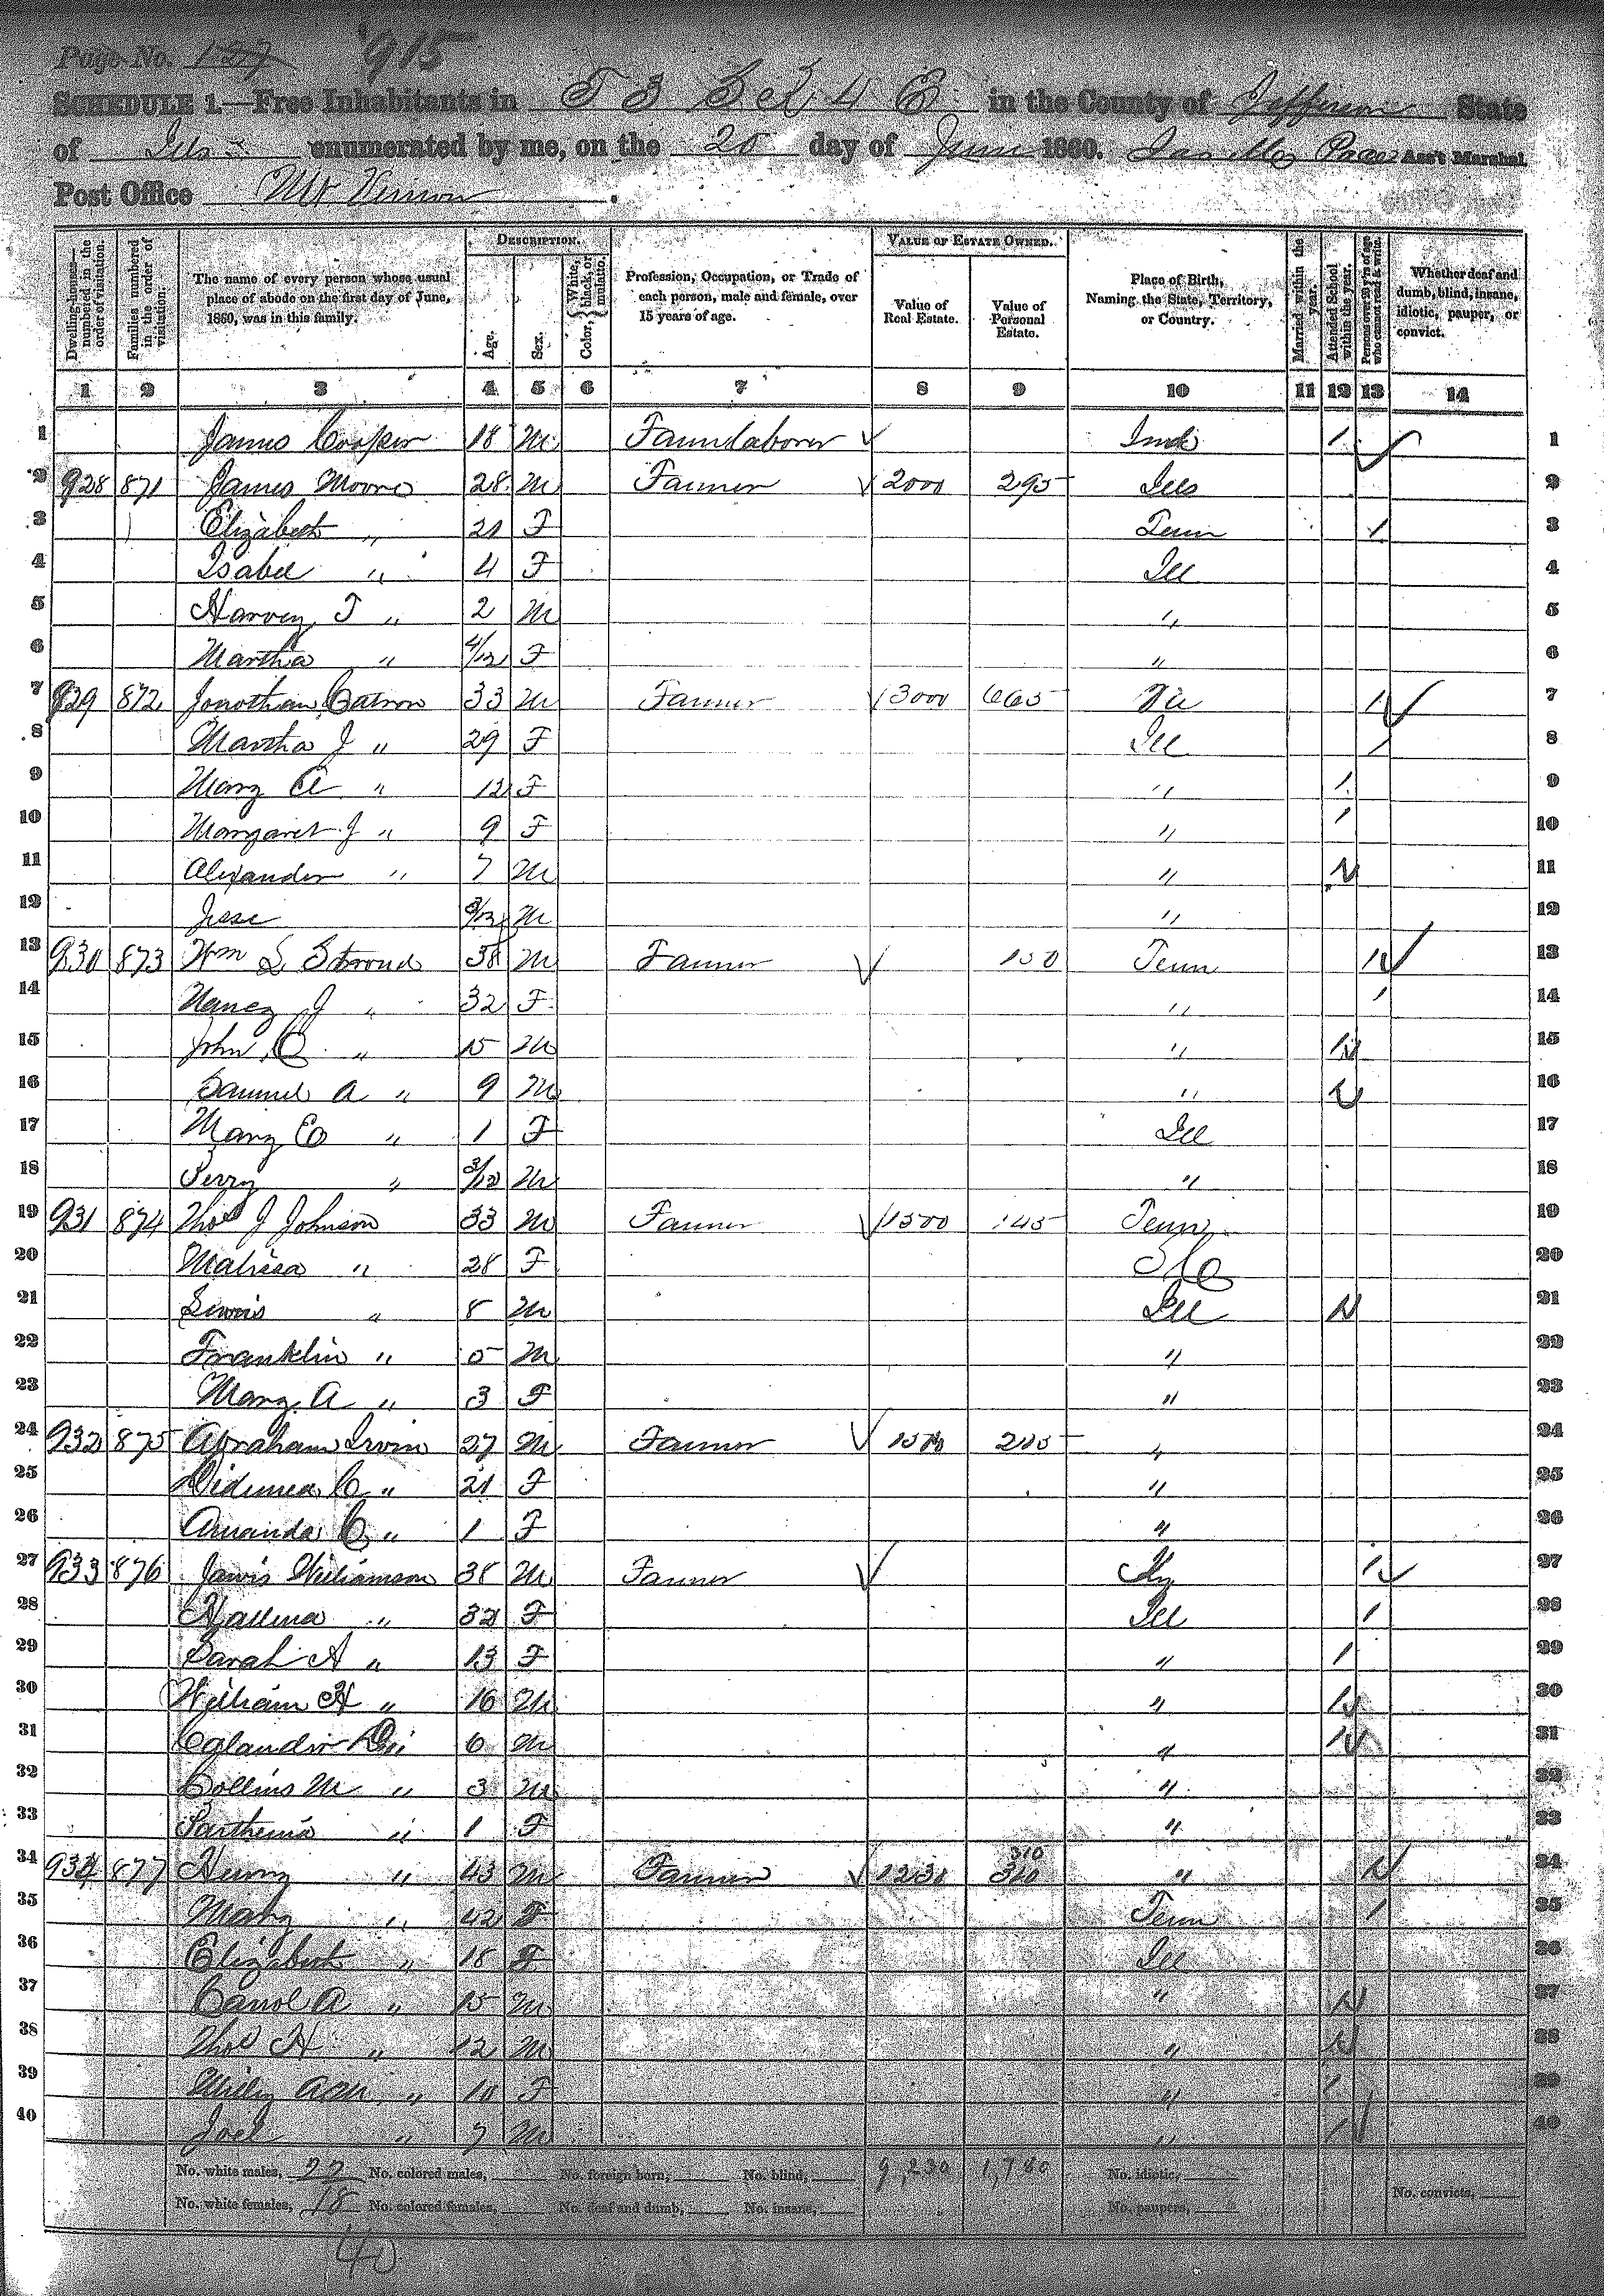 Page No. 127 915
SCHEDULE 1.—Free Inhabitants in T 3 S R 4 E in the County of Jefferson State
of Ills enumerated by me, on the 20 day of June 1860. Pace Ass't Marshal
Post Office Mt Vernon.
DESCRIPTION. VALUE OF ESTATE OWNED.
Dwelling-houses—numbered in the order of visitation. Families numbered in the order of visitation. The name of every person whose usual place of abode on the first day of June, 1860, was in this family. Age. Sex. Color, { White, black, or mulatto. Profession, Occupation, or Trade of each person, male and female, over 15 years of age. Value of Real Estate. Value of Personal Estate. Place of Birth, Naming the State, Territory, or Country. Married within the year. Attended School within the year. Persons over 20 y'rs of age who cannot read & write. Whether deaf and dumb, blind, insane, idiotic, pauper, or convict.
1 2 3 4 5 6 7 8 9 10 11 12 13 14
1 James Cooper 18 M Farm laborer Ind 1 1
2 928 871 James Moore 28 M Farmer 2000 295 Ills 2
3 Elizabeth " 21 F Tenn 1 3
4 Isabel " 4 F Ill 4
5 Harvey T " 2 M " 5
6 Martha " 4/12 F " 6
7 929 872 Jonothan Catron 33 M Farmer 3000 665 1 7
8 Martha J " 29 F Ill 1 8
9 Mary A " 12 F " 1 9
10 Margaret J " 9 F " 1 10
11 Alexander " 7 M " 1 11
12 Jesse M " 12
13 930 873 Wm L Stroud 38 M Farmer 150 Tenn 1 13
14 Nancy J " 32 F " 1 14
15 John C " 15 M " 1 15
16 Samuel A " 9 M " 1 16
17 Mary E " 1 F Ill 17
18 Perry " 3/12 M " 18
19 931 874 Thos J Johnson 33 M Farmer 1500 145 Tenn 19
20 Malissa " 28 F 20
21 Lewis " 8 M Ill 1 21
22 Franklin " 5 M " 22
23 Mary A " 3 F " 23
24 932 875 Abraham Irvin 27 M Farmer 1500 215 " 24
25 C " 21 F " 25
26 Amanda C " 1 F " 26
27 933 876 Jarvis Williamson 38 M Farmer Ky 1 27
28 " 32 F Ill 1 28
29 Sarah A " 13 F " 1 29
30 William H " 10 M " 1 30
31 " 6 M " 1 31
32 Collins M " 3 M " 32
33 Parthenia " 1 F " 33
34 934 877 Henry " 43 M Farmer 1230 310 310 " 1 34
35 Mary " 42 F Tenn 1 35
36 Elizabeth " 18 F Ill 36
37 Carrol A " 15 M " 1 37
38 Thos H " 12 M " 1 38
39 Ann " 10 F " 1 39
40 Joel " 7 M " 1 40
No. white males, 22 No. colored males, No. foreign born, No. blind, 9,230 1,780 No. idiotic,
No. white females, 18 No. colored females, No. deaf and dumb, No. insane, No. paupers, No. convicts,
40